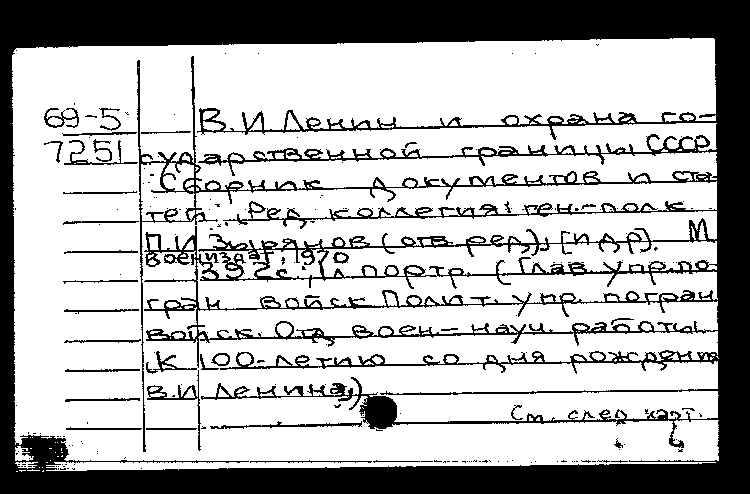 69-5 В.И Ленин и охрана го-
7251 сударственной границы СССР
Сборник документов и ста-
тей „Ред. коллегия: ген.-полк
П.И Зырянов (отв ред.), [и др]. М
Воениздат, 1970
392с., 1л портр. (Глав. упр. по-
гран войск Полит. упр. погран
войск. Отд воен-науч. работы
„К 100-летию со дня рождения
В.И Ленина“)
См. след карт.